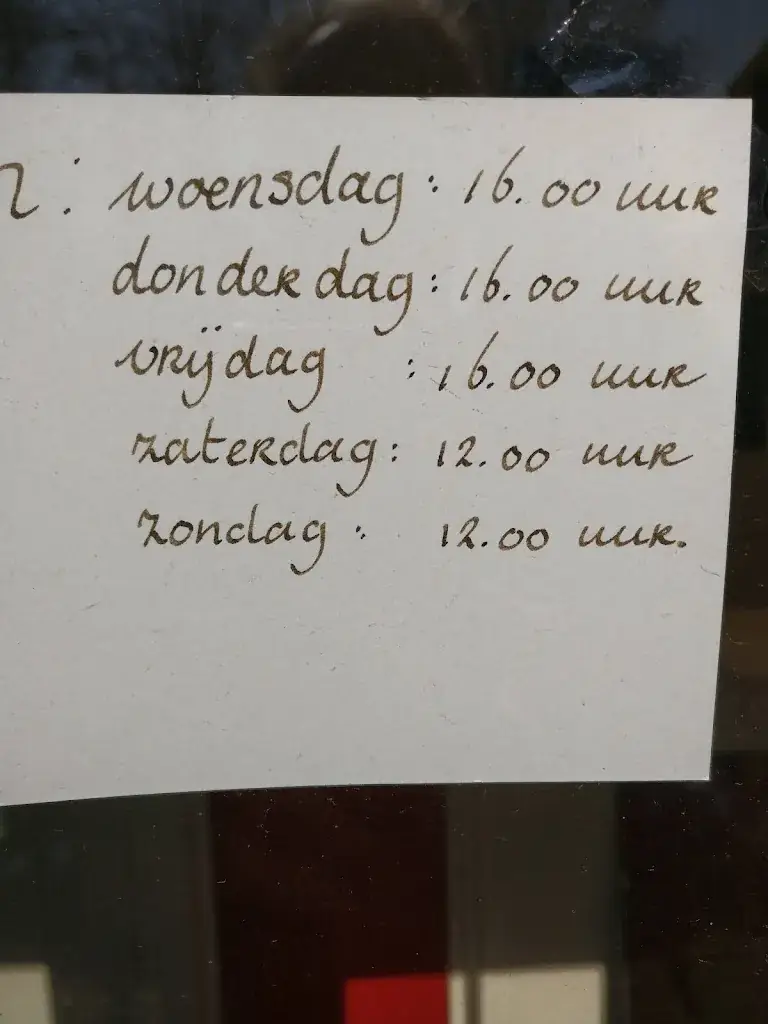 n: woensdag: 16.00 uur
donderdag: 16.00 uur
vrijdag : 16.00 uur
zaterdag: 12.00 uur
zondag: 12.00 uur.